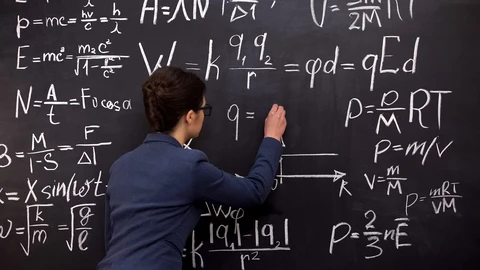 p = mc = hν/c = h/λ
H = λN
= √(υ/2M) RT
E = mc² = m₀c²/√(1-
W = k q₁q₂/r = φd = qEd
N = A/t = Fυcosα
q =
p = ρ/M RT
B = M/I·S = F/Δl
p = m/V
= X sin(ωt
V = m/M
p = mRT/VM
= √(k/m) = √(g/l
ΔWφ
k
k |q₁|·|q₂|/r²
p = 2/3 nE̅